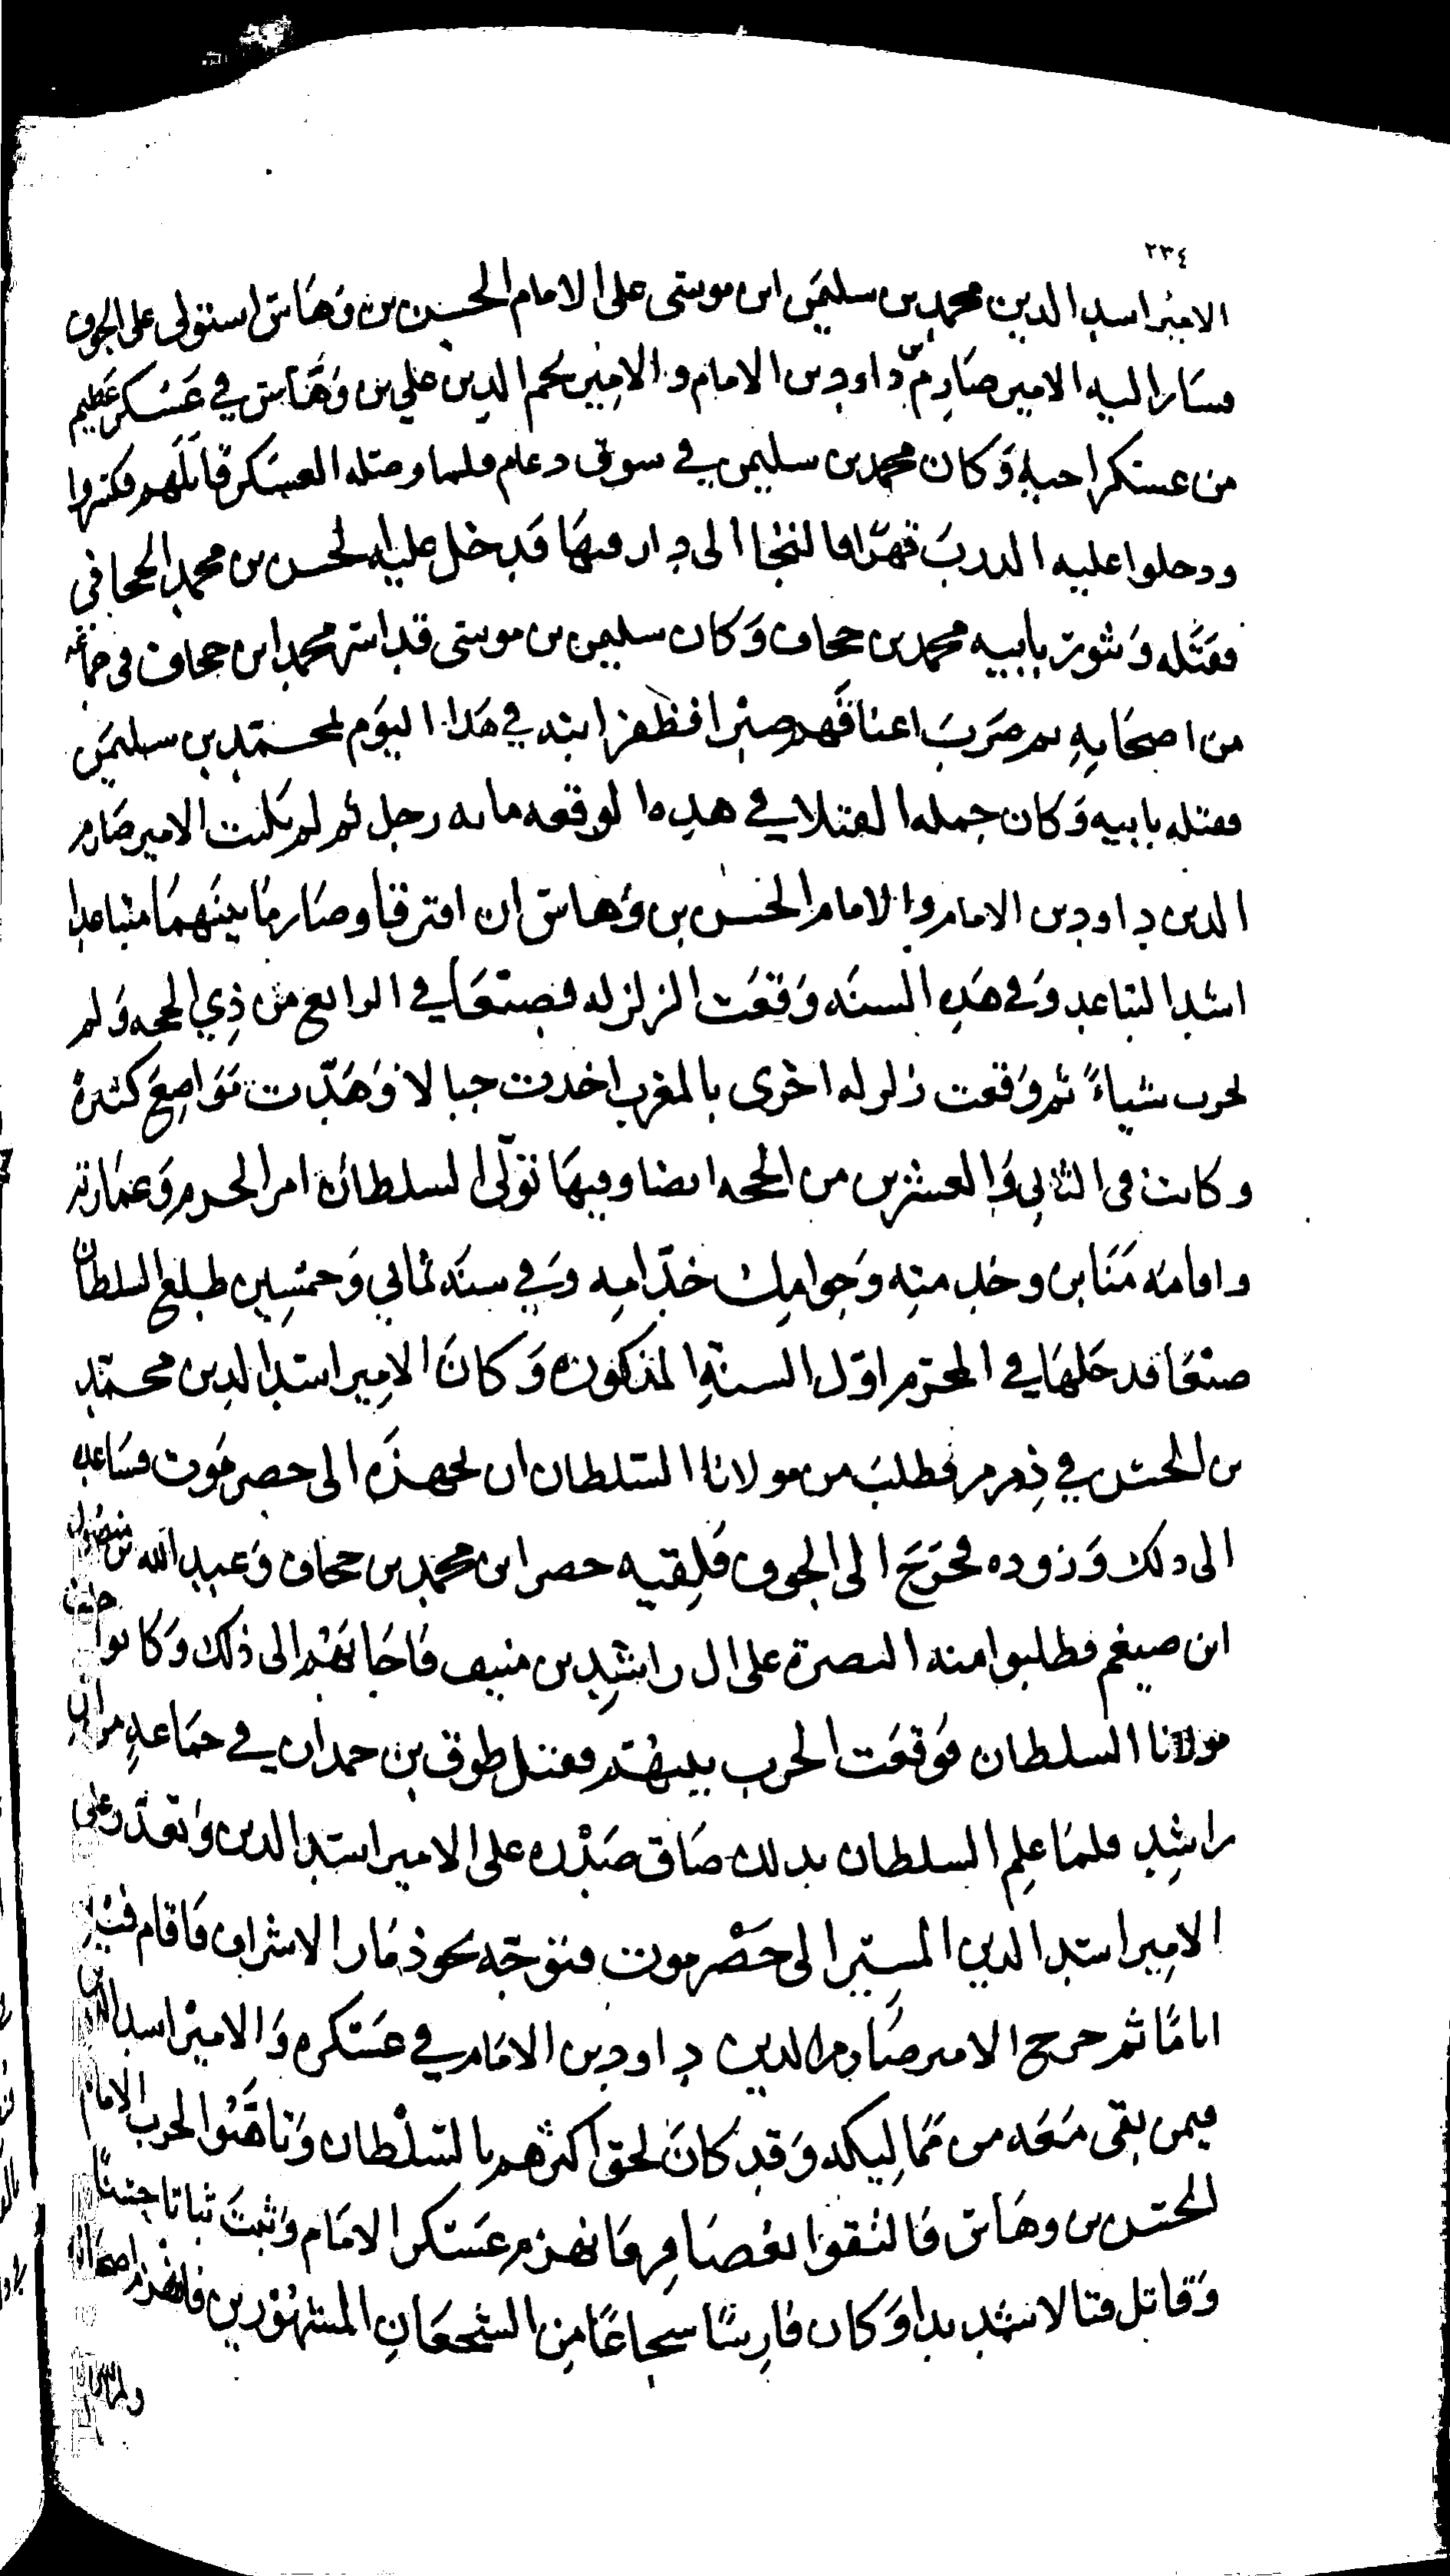 ٢٣٤
الامير اسد الدين محمد بن سليمن ابن موسى على الامام الحسن بن وهاس استولى على الجوف
فسار اليه الامير صارم داود بن الامام والامير نجم الدين علي بن وهاس في عسكر عظيم
من عسكر اخيه وكان محمد بن سليمن في سوق دعام فلما وصله العسكر قاتلهم فكثروا
ودخلوا عليه الدرب قهرا فالتجا الى دار فيها فدخل عليه الحسن بن محمد الجحافي
فقتله وثور بابيه محمد بن جحاف وكان سليمن بن موسى قد اسر محمد ابن جحاف في جماعه
من اصحابه ثم ضرب اعناقهم صبرا فظفر ابنه في هذا اليوم بمحمد بن سليمن
فقتله بابيه وكان جمله القتلا في هذه الوقعه مايه رجل ثم لم يلبث الامير صارم
الدين داود بن الامام والامام الحسن بن وهاس ان افترقا وصار ما بينهما متباعدا
اشد التباعد وفي هذه السنه وقعت الزلزله فصنعا في الرابع من ذي الحجه ولم
تخرب شياء ثم وقعت زلزله اخرى بالمغرب اخذت جبالا وهدت مواضع كثيرة
وكانت في الثاني والعشرين من الحجه ايضا وفيها تولى السلطان امر الحرم وعمارته
واقامة منابر وخدمته وجوامك خدامه وفي سنه ثماني وخمسين طلع السلطان
صنعا فدخلها في المحرم اول السنة المذكورة وكان الامير اسد الدين محمد
بن الحسن في ذمرمر فطلب من مولانا السلطان ان يجهزه الى حضرموت فساعده
الى ذلك وزوده فخرج الى الجوف فلقيه حصر ابن محمد بن جحاف وعبد الله بن منصور
ابن ضيغم فطلبوا منه النصرة على ال راشد بن منيف فاجابهم الى ذلك وكانوا حلف
مولانا السلطان فوقعت الحرب بينهم فقتل طوق بن حمدان في جماعه من ال
راشد فلما علم السلطان بذلك ضاق صدره على الامير اسد الدين وتعذر على
الامير اسد الدين المسير الى حضرموت فتوجه نحو ذمار الاشراف فاقام فيها
اياما ثم خرج الامير صارم الدين داود بن الامام في عسكره والامير اسد الدين
فيمن بقى معه من مماليكه وقد كان لحق اكثرهم بالسلطان وتاهبوا لحرب الامام
الحسن بن وهاس فالتقوا بعصافر فانهزم عسكر الامام وثبت ثباتا حسنا
وقاتل قتالا شديدا وكان فارسا شجاعا من الشجعان المشهورين فانهزم اصحابه